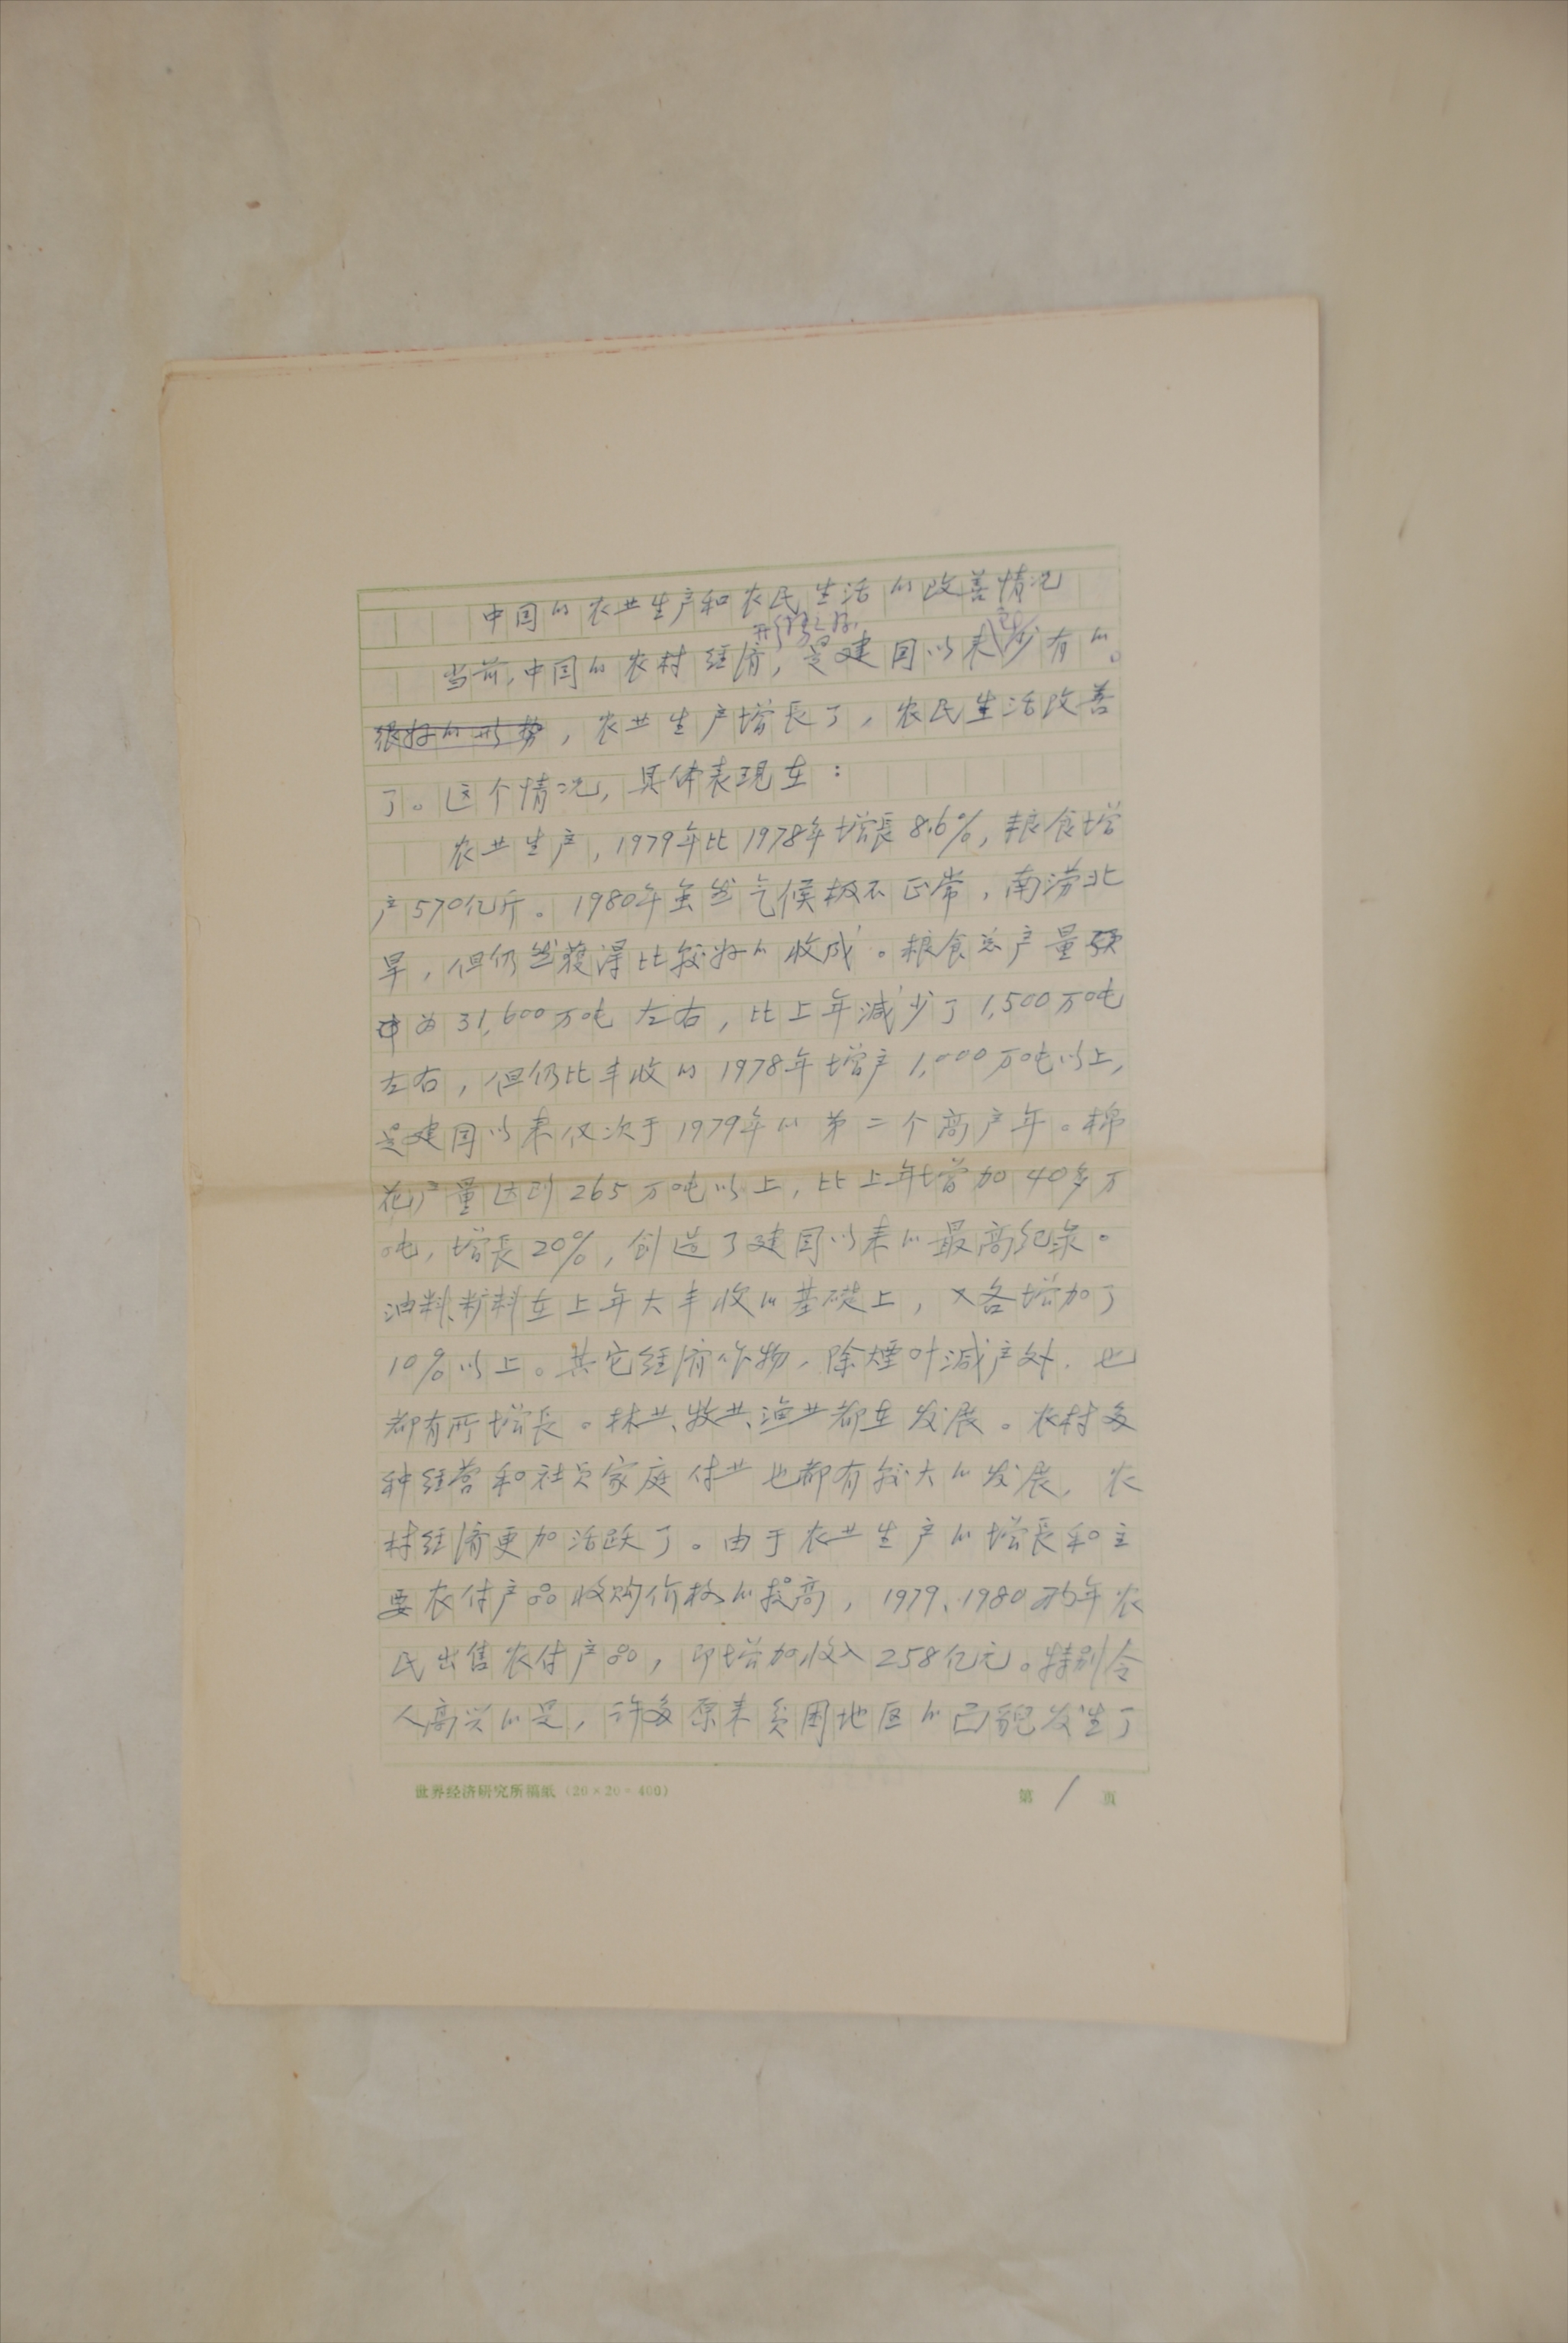 中国的农业生产和农民生活的改善情况
形势之好,
当前,中国的农村经济,是建国以来少有的。
很好的形势,农业生产增長了,农民生活改善
了。这个情况,具体表现在:
农业生产,1979年比1978年增長8.6%,粮食增
产570亿斤。1980年虽然气候极不正常,南涝北
旱,但仍然獲得比较好的收成。粮食总产量预
计为31,600万吨左右,比上年减少了1,500万吨
左右,但仍比丰收的1978年增产1,000万吨以上,
是建国以来仅次于1979年的第二个高产年。棉
花产量达到265万吨以上,比上年增加40多万
吨,增長20%,创造了建国以来的最高纪录。
油料、料在上年大丰收的基礎上,又各增加了
10%以上。其它经济作物,除煙叶减产外,也
都有所增長。林业、牧业、渔业都在发展。农村多
种经营和社员家庭付业也都有较大的发展,农
村经济更加活跃了。由于农业生产的增長和主
要农付产品收购价格的提高,1979、1980两年农
民出售农付产品,即增加收入258亿元。特别令
人高兴的是,许多原来贫困地区的面貌发生了
世界经济研究所稿紙(20×20=400)
第 1 页